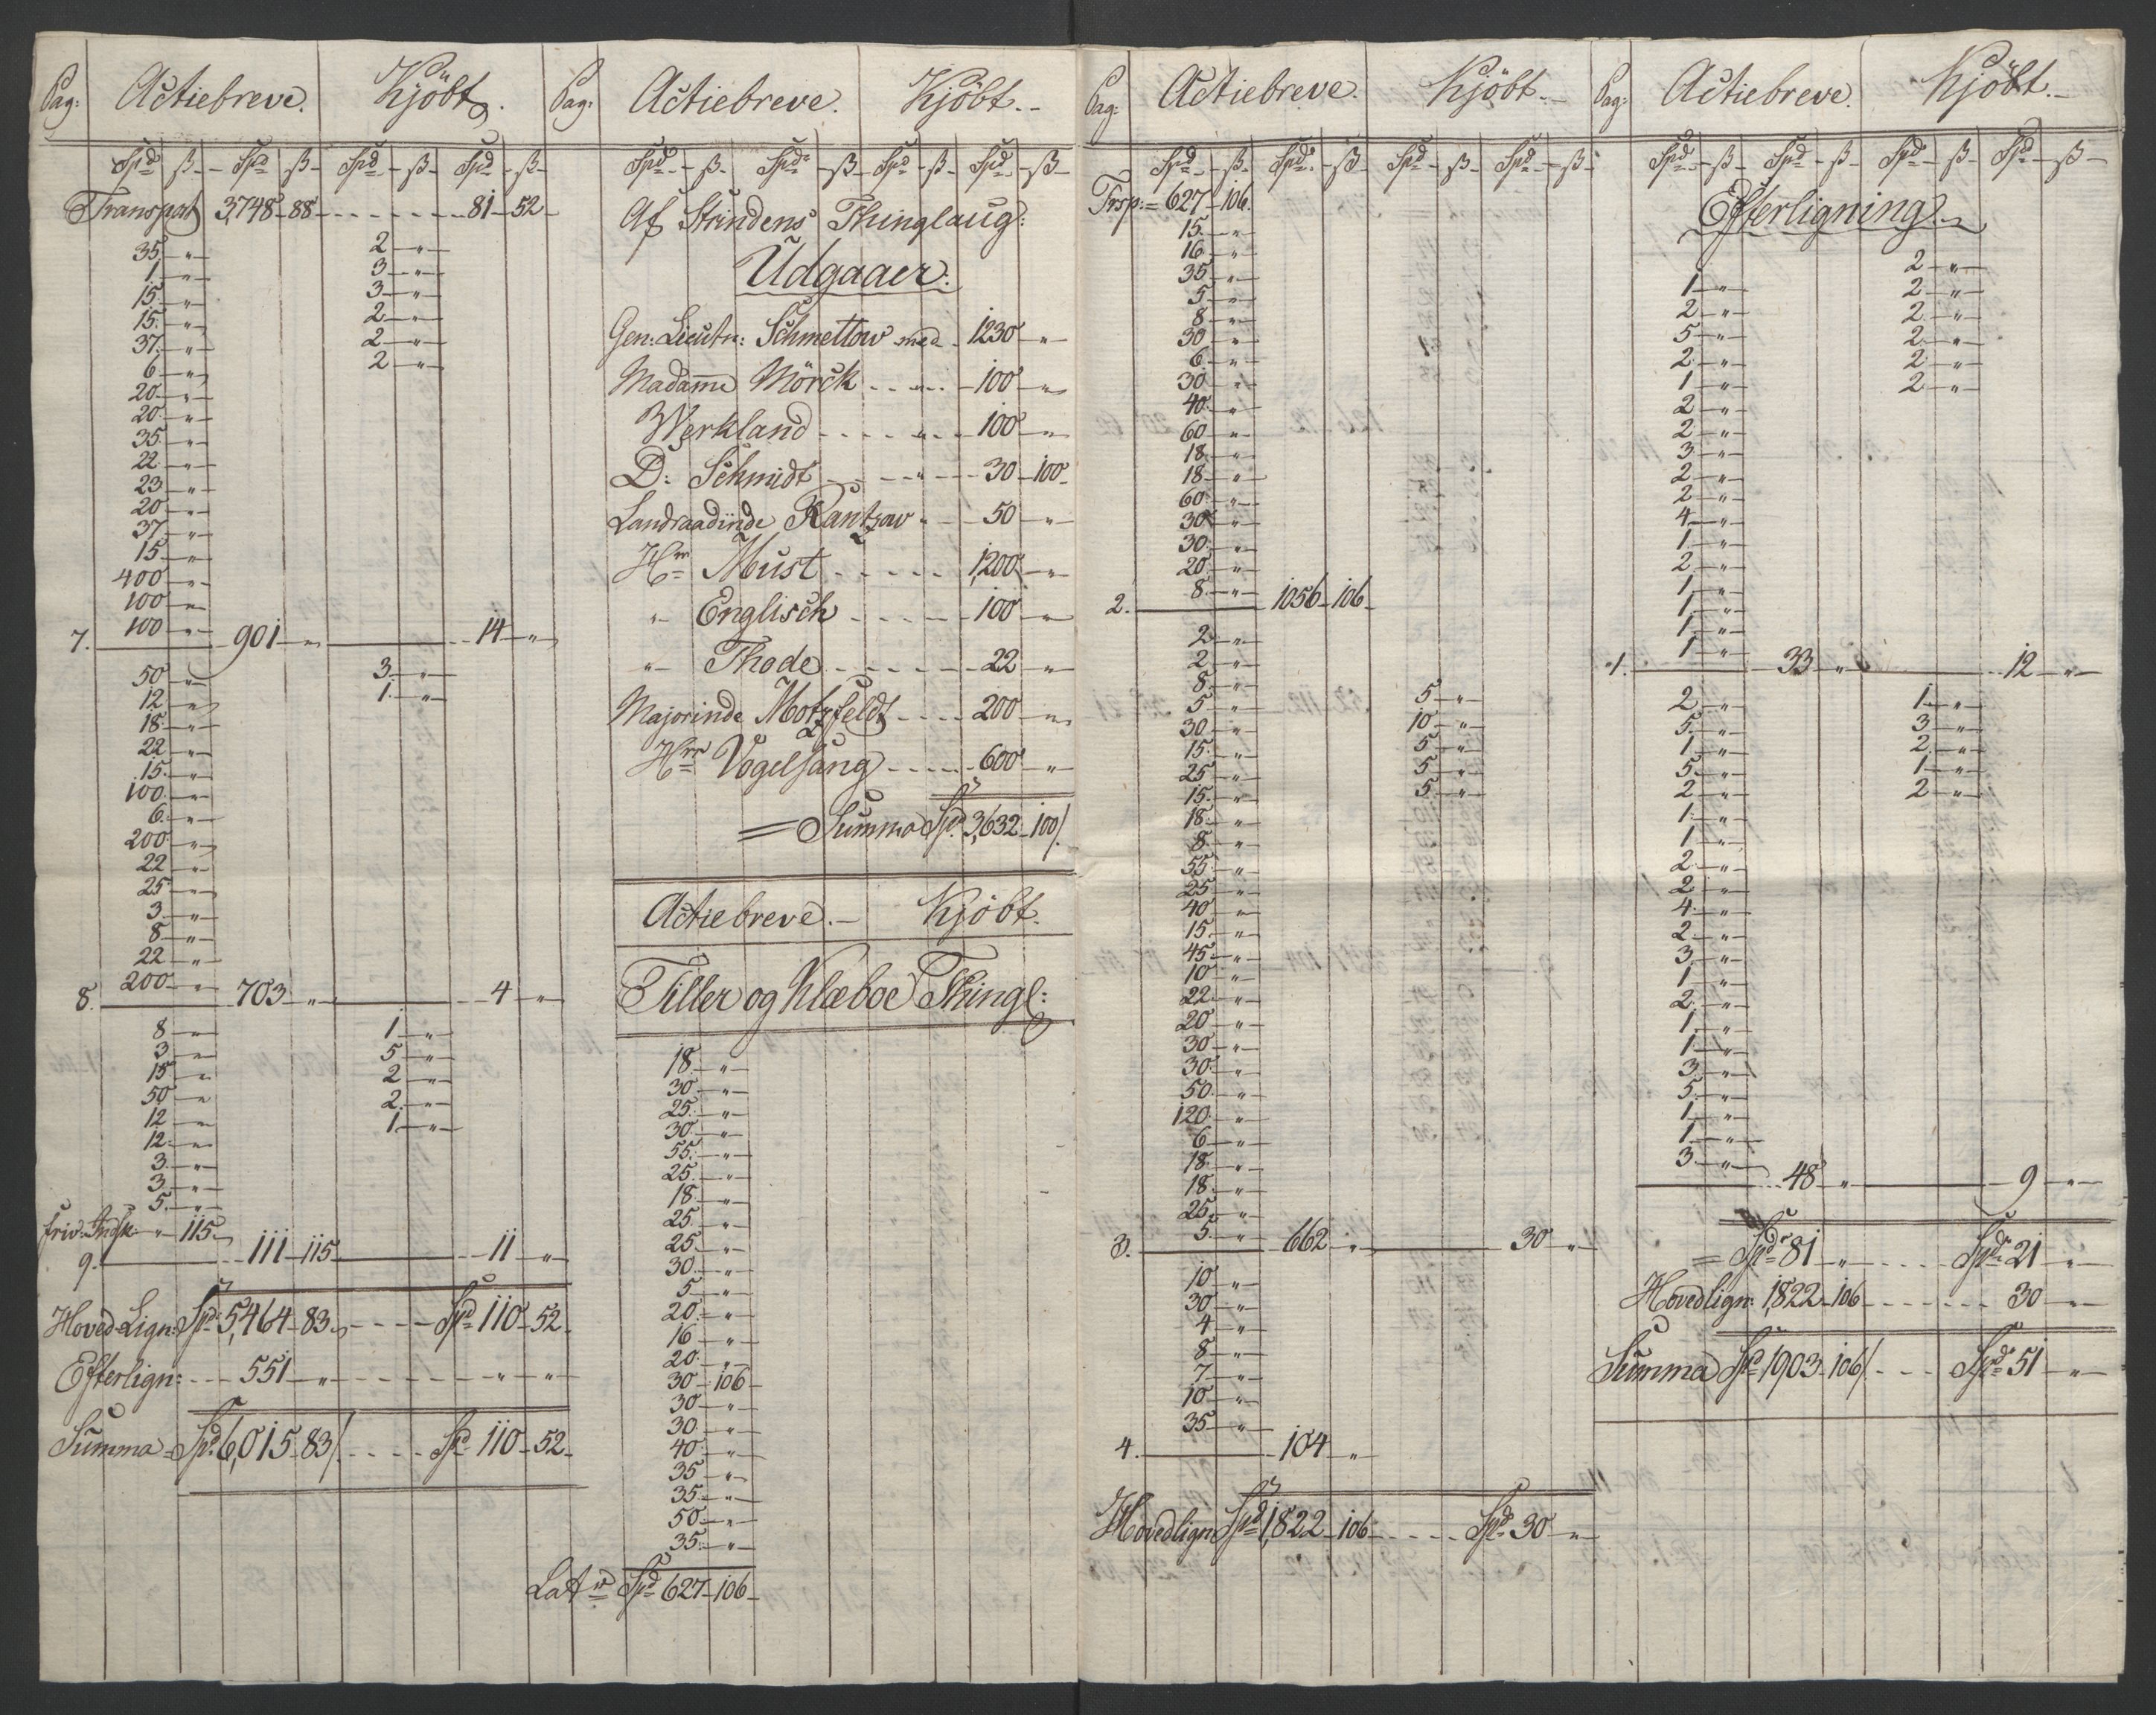 Pag: Actiebreve. Kjöbt.
Spd ß Spd ß Spd ß Spd ß
Transport 3,748 - 88 - - - - 81 - 52
35 - " 2 - "
1 - " 3 - "
15 - " 3 - "
15 - " 2 - "
37 - " 2 - "
6 - " 2 - "
20 - "
20 - "
35 - "
22 - "
23 - "
20 - "
37 - "
15 - "
400 - "
100 - "
7. 100 - " 901 - " 14 - "
50 - " 3 - "
12 - " 1 - "
18 - "
22 - "
15 - "
100 - "
6 - "
200 - "
22 - "
25 - "
3 - "
8 - "
22 - "
8. 200 - " 703 - " 4 - "
8 - " 1 - "
3 - " 5 - "
15 - " 2 - "
50 - " 2 - "
12 - " 1 - "
12 - "
3 - "
3 - "
5 - "
friv. Indsk. " 115
9. 111 - 115 11 - "
Hoved-Lign: Spd 5,464 - 83 - - - Spd 110 - 52
Efterlign: - - 551 - " - - - " - "
Summa Spd 6,015 - 83/. - - - Spd 110 - 52
Pag: Actiebreve. Kjöbt.
Spd ß Spd ß Spd ß Spd ß
Af Strindens Thinglaug:
Udgaaer:
Gen: Lieutn: Schmettow med 1230 - "
Madame Mörck - - 100 - "
Werkland - - - 100 - "
D: Schmidt - - - 30 - 100
Landraadinde Rantzow - - 50 - "
Hr Must - - - 1,200 - "
" Englisch - - - 100 - "
" Thode - - - 22 - "
Majorinde Motzfeldt - - - 200 - "
Hrr Vogelsang - - - 600 - "
= Summa Spd 3,632 - 100/.
Actiebreve. - Kjöbt.
Tiller og Klæboe Thingl:
18 - "
30 - "
25 - "
30 - "
55 - "
25 - "
18 - "
25 - "
25 - "
30 - "
5 - "
20 - "
16 - "
20 - "
30 - 106
30 - "
30 - "
40 - "
35 - "
35 - "
50 - "
35 - "
Lat Spd 627 - 106
Pag: Actiebreve. Kjöbt.
Spd ß Spd ß Spd ß Spd ß
Trsp: = 627 - 106
15 - "
16 - "
35 - "
5 - "
8 - "
30 - "
6 - "
30 - "
40 - "
60 - "
18 - "
18 - "
60 - "
30 - "
30 - "
20 - "
2. 8 - " 1056 - 106
2 - "
2 - "
8 - "
5 - " 5 - "
30 - " 10 - "
15 - " 5 - "
25 - " 5 - "
15 - " 5 - "
18 - "
8 - "
55 - "
25 - "
40 - "
15 - "
45 - "
10 - "
22 - "
20 - "
30 - "
30 - "
50 - "
120 - "
6 - "
18 - "
18 - "
25 - "
3. 5 - " 662 - " 30 - "
10 - "
30 - "
4 - "
8 - "
7 - "
10 - "
35 - "
4. 104 - "
Hovedlign Spd 1,822 - 106 - - - Spd 30 - "
Pag: Actiebreve. Kjöbt.
Spd ß Spd ß Spd ß Spd ß
Efterligning
2 - "
1 - " 2 - "
2 - " 2 - "
5 - " 2 - "
2 - " 2 - "
1 - " 2 - "
2 - "
2 - "
3 - "
2 - "
2 - "
4 - "
1 - "
2 - "
1 - "
1 - "
1 - "
1. 1 - " 33 - " 12 - "
2 - " 1 - "
5 - " 3 - "
1 - " 2 - "
5 - " 1 - "
2 - " 2 - "
1 - "
1 - "
2 - "
2 - "
4 - "
2 - "
3 - "
1 - "
2 - "
1 - "
1 - "
3 - "
5 - "
1 - "
1 - "
3 - "
48 - " 9 - "
= Spdr 81 - " - - - Spdr 21 - "
Hovedlign: 1,822 - 106 - - - 30 - "
Summa Spd 1903 - 106/. - - - Spdr 51 - "